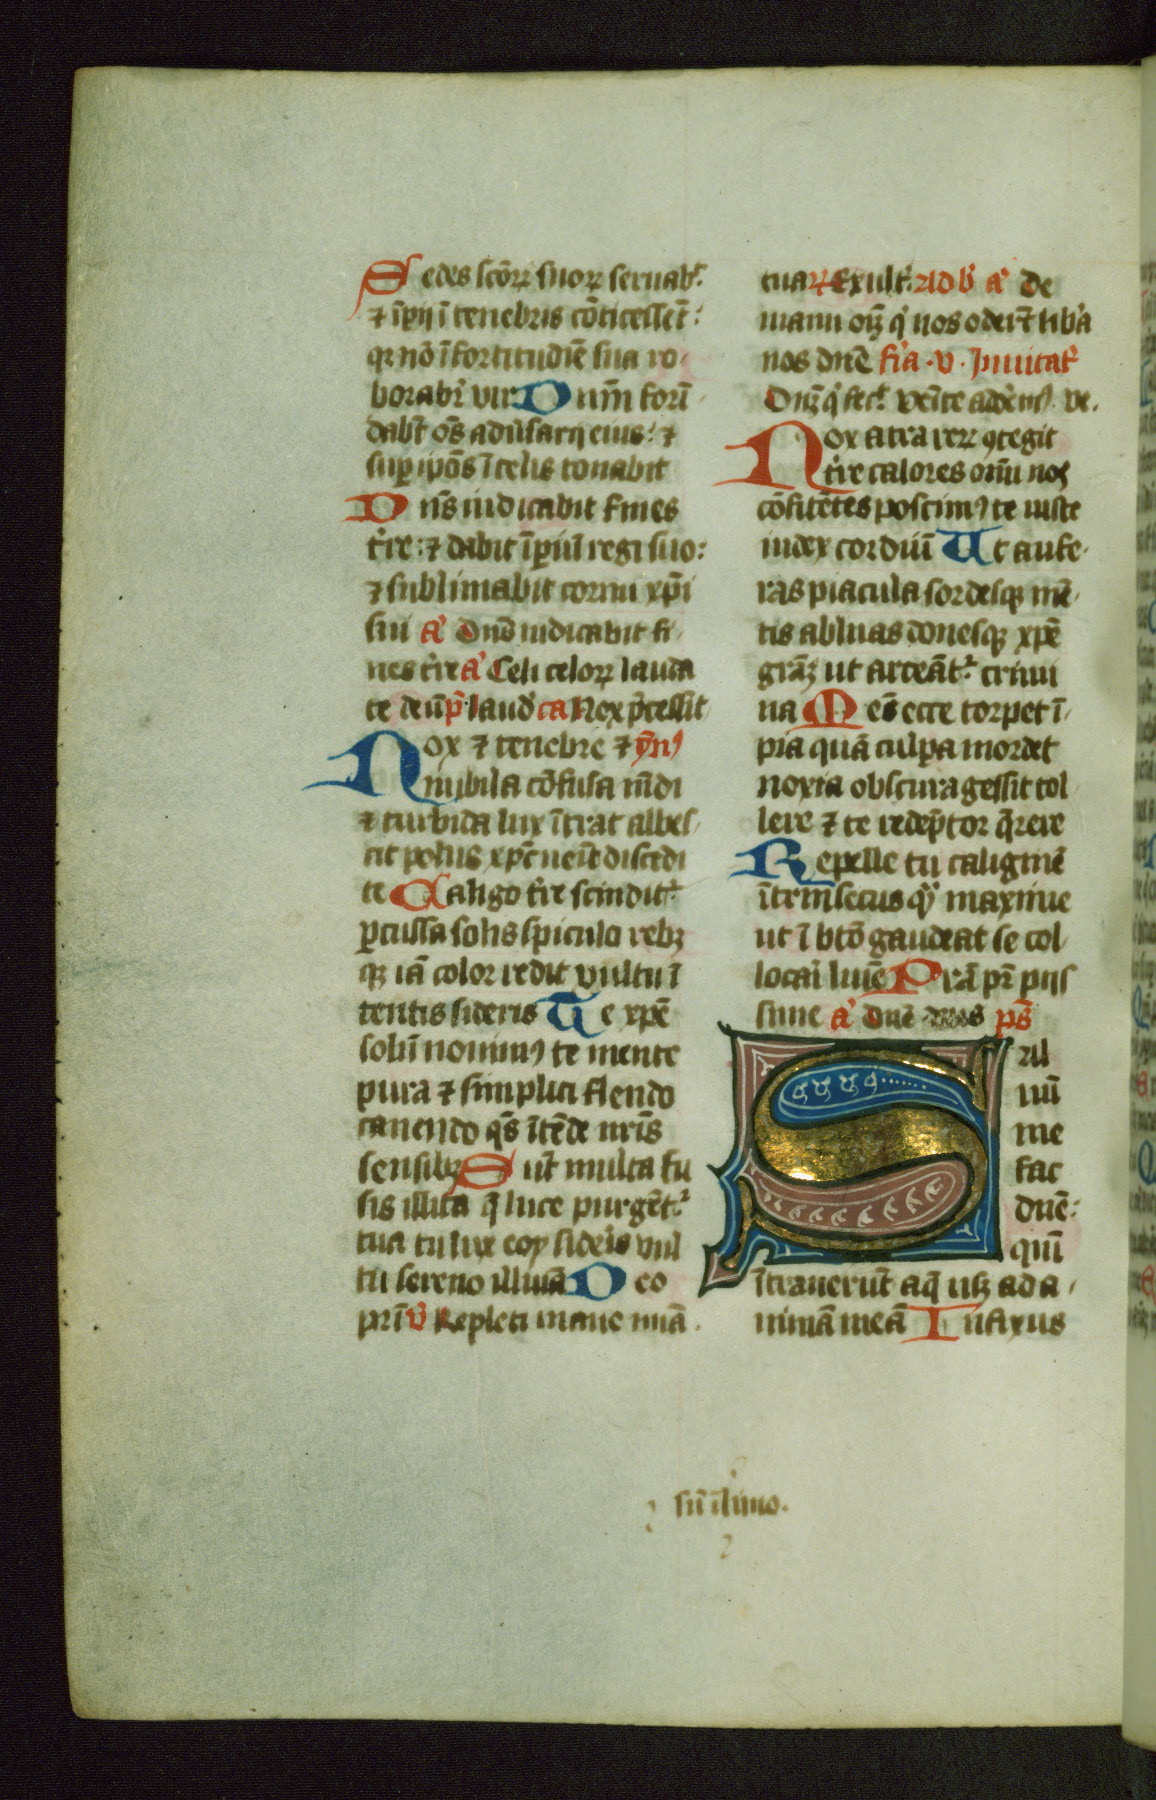 Sedes sc̄oꝝ suoꝝ seruabᷣt:
⁊ īpij ī tenebris cōticescēt:
qꝛ nō ī fortitudīe sua ro
borabᷣr vir Dnm̄ formi
dabt̄ os̄ adūsarij eius: ⁊
suꝑ ipōs ī celis tonabit
Dn̄s iudicabit fines
tᷣre: ⁊ dabit īpiū regi suo:
⁊ sublimabit cornu xp̄i
sui aͣ Dn̄s iudicabit fi
nes tᷣre aͣ Celi celoꝝ lauda
te deū p̄ laud' ca Nex p̄cessit
Nox ⁊ tenebre ⁊ ym̄n
nubila cōfusa mūdi
⁊ turbida lux ītrat albes
cit polus xp̄c ueīt discedi
te Caligo tᷣre scinditᷣ
ꝑcussa solis spiculo rebꝫ
qꝫ iā color redit vultu ī
tentis sideris Te xp̄e
solū nouimꝰ te mente
pura ⁊ simplici flendo
canendo qs̄ ītēde nr̄is
sensibꝫ Sūt multa fu
sis illita q̄ luce purgētᷣ
tua tu lux eoy sideris vul
tu sereno illumā Deo
pr̄ī v̄ Repleti mane mīa
tuaꝝ Exultᷣ. Ad b' aͣ de
manu oīꝫ q' nos oderūt lib'a
nos dn̄e f'ia · v · Inuitatᷣ
Dn̄ꝫ q' fecᷣ. venīte adorem⁹. ve.
Nox atra reꝝ ꝯtegit
tᷣre calores om̄u nos
cōfitētes poscimꝰ te iuste
iudex cordiū Ut aufe
ras piacula sordesqꝫ mē
tis abluas donesqꝫ xp̄e
grāꝫ ut arceātᷣ crimi
na Mēs ecce torpet ī
pia quā culpa mordet
noxia obscura gessit tol
lere ⁊ te redēptor q̄rere
Repelle tu caliginē
ītrinsecus q̄ maxime
ut ī btō gaudeat se col
locari luīe Prā pr̄ pijs
sime aͣ Dn̄e deus ps̄
Sal
uū
me
fac
dn̄e:
qm̄
ītrauerūt aq̄ usꝫ ad a
nimā meā Infixus
sū ī limo.